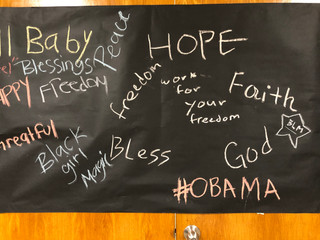 ll Baby
Peace
HOPE
Blessings
APPY
Freedom
freedom
work
for
your
freedom
Faith
BLM
Black
girl
Magic
Bless
God
#OBAMA